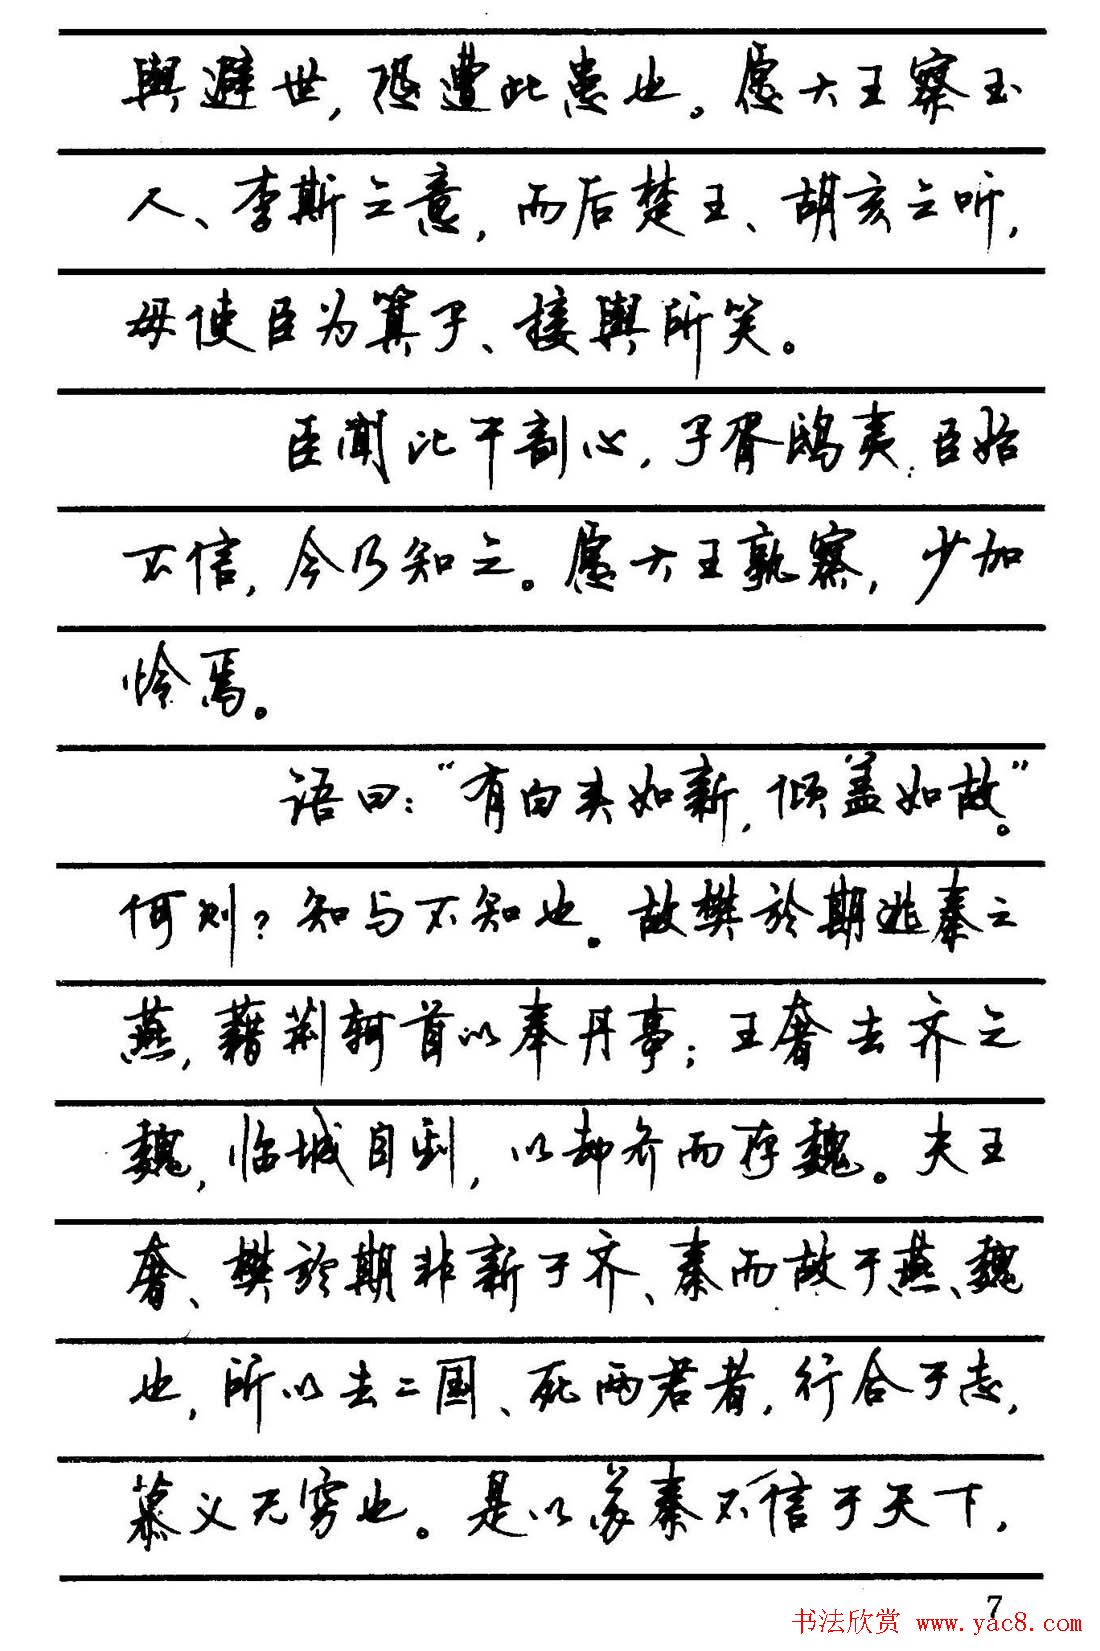 舆避世，恐遭此患也。愿大王察玉
人、李斯之意，而后楚王、胡亥之听，
毋使臣为箕子、接舆所笑。
臣闻比干剖心，子胥鸱夷，臣始
不信，今乃知之。愿大王孰察，少加
怜焉。
语曰：“有白头如新，倾盖如故”。
何则？知与不知也。故樊於期逃秦之
燕，藉荆轲首以奉丹事；王奢去齐之
魏，临城自刭，以却齐而存魏。夫王
奢、樊於期非新于齐、秦而故于燕、魏
也，所以去二国、死两君者，行合于志，
慕义无穷也。是以苏秦不信于天下，
7
书法欣赏 www.yac8.com